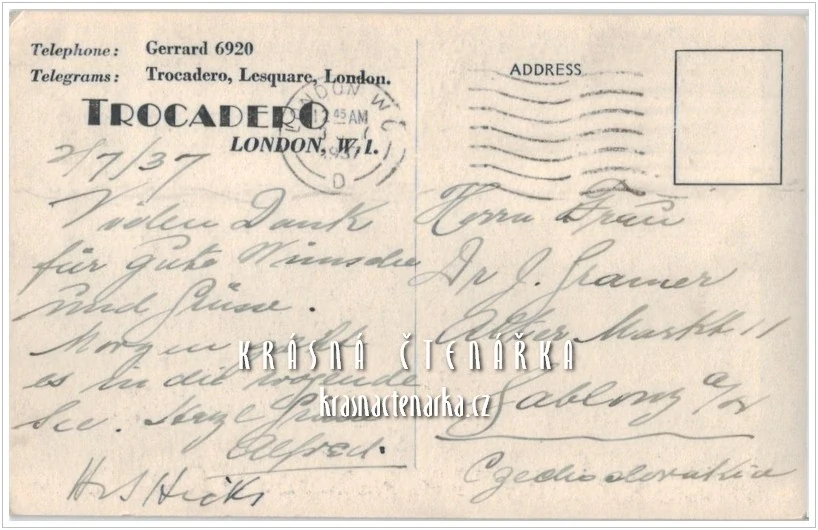 Telephone: Gerrard 6920
Telegrams: Trocadero, Lesquare, London.
TROCADERO
LONDON, W.1.
ADDRESS
LONDON W.C
45 AM
1937
D
2/7/37
Vielen Dank
für gute Wünsche
und Grüsse.
Morgen geht
es in die wogende
See. Herzl Grüsse
Alfred.
Herrn u Frau
Dr J. Gramer
Alter Markt 11
Gablonz a/N
Czechoslovakia
KRÁSNÁ ČTENÁŘKA
krasnactenarka.cz